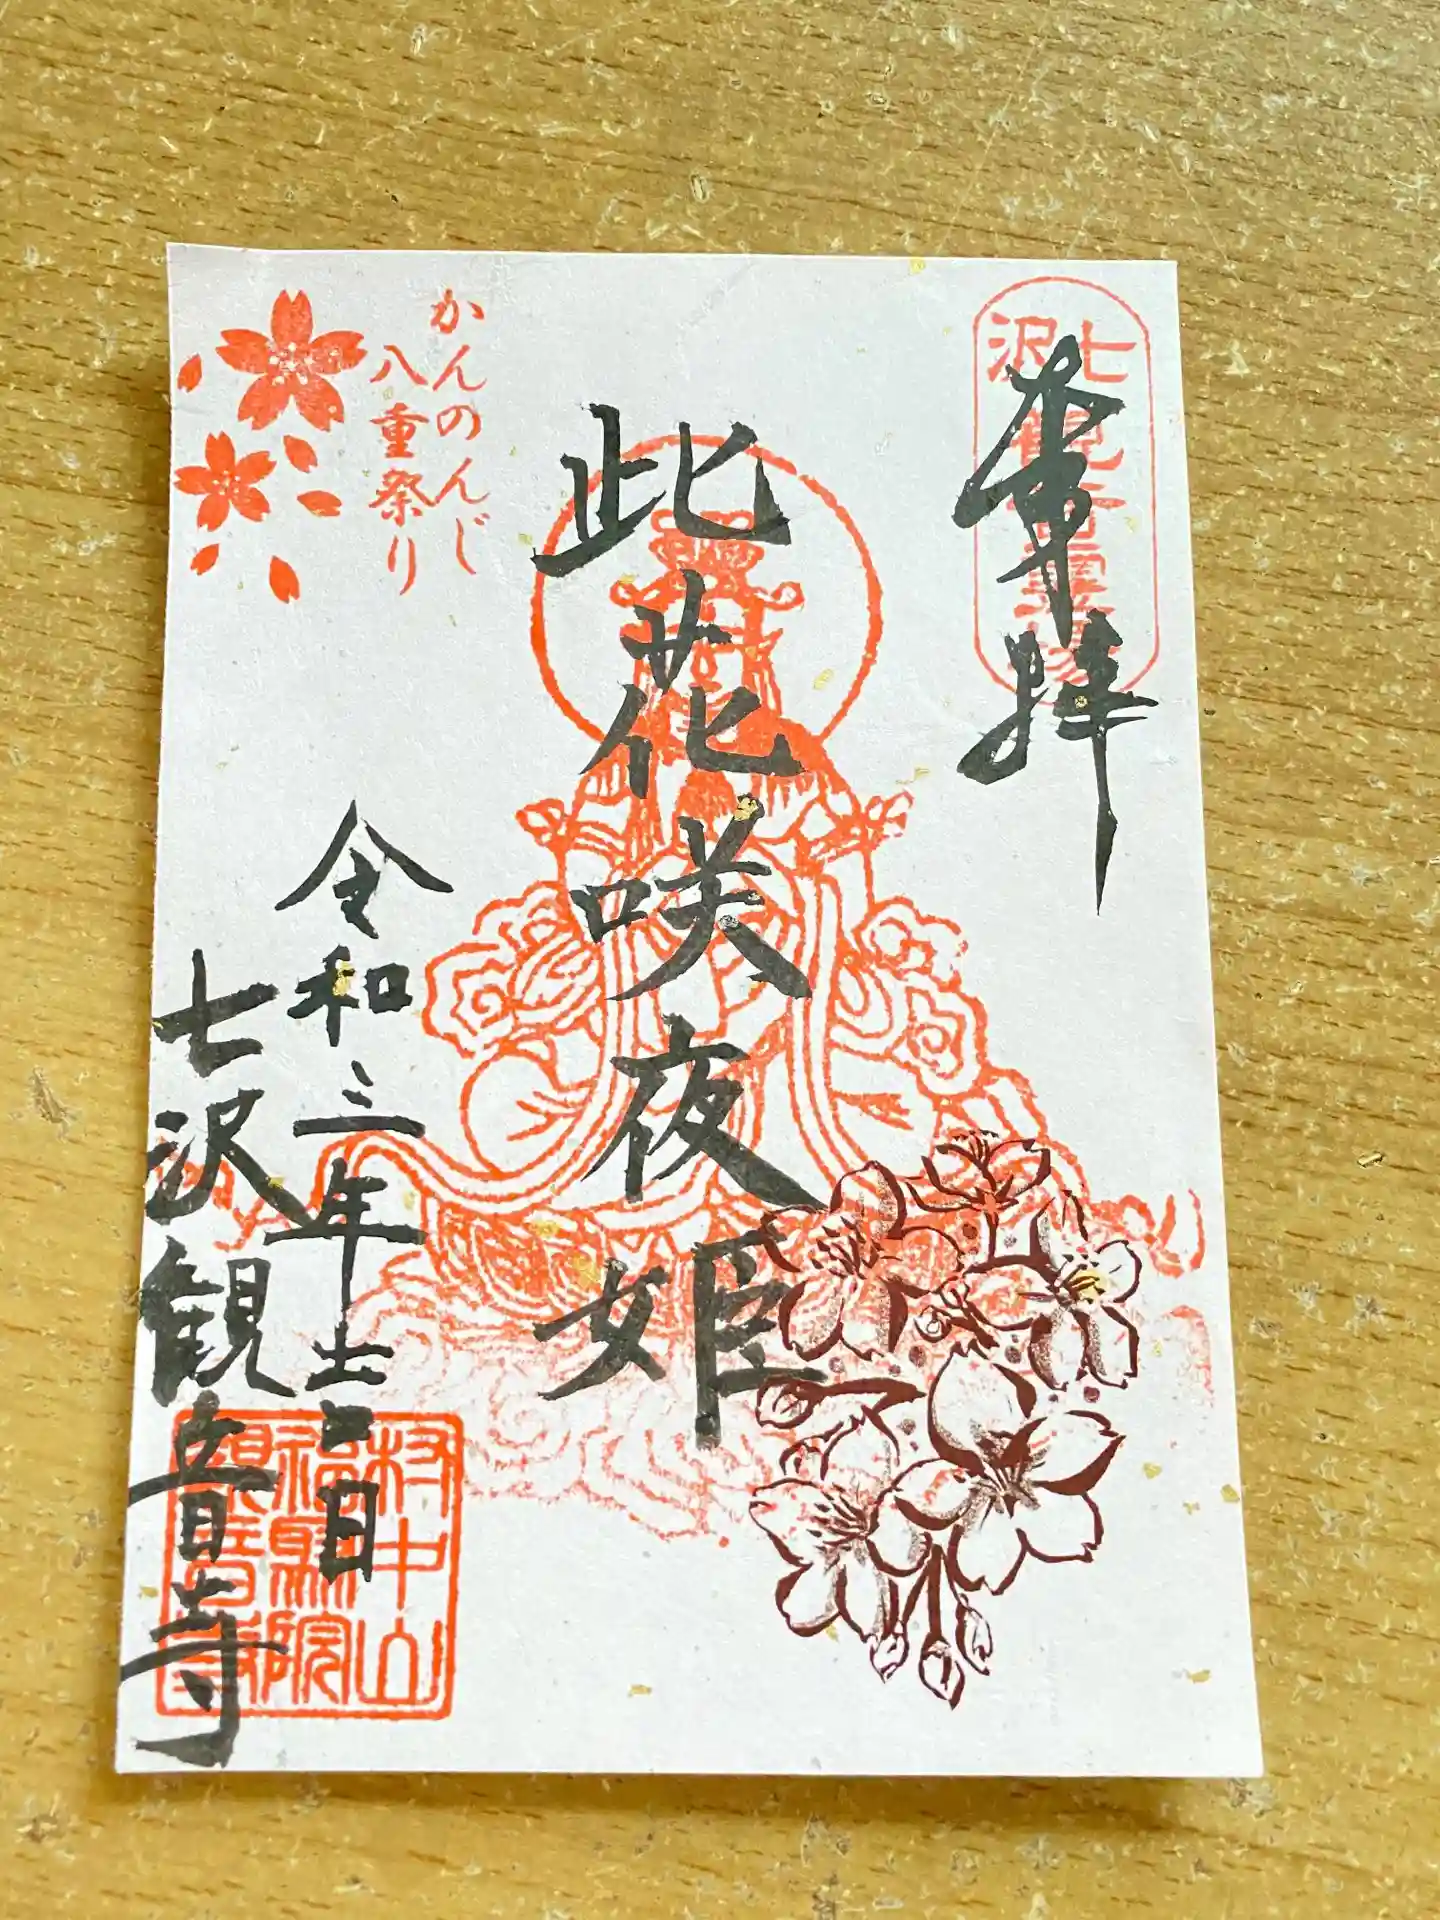 奉拝
七沢観音霊場
此花咲夜姫
かんのんじ
八重祭り
令和三年十二月二日
七沢観音寺
村中山
福聚院
観音寺